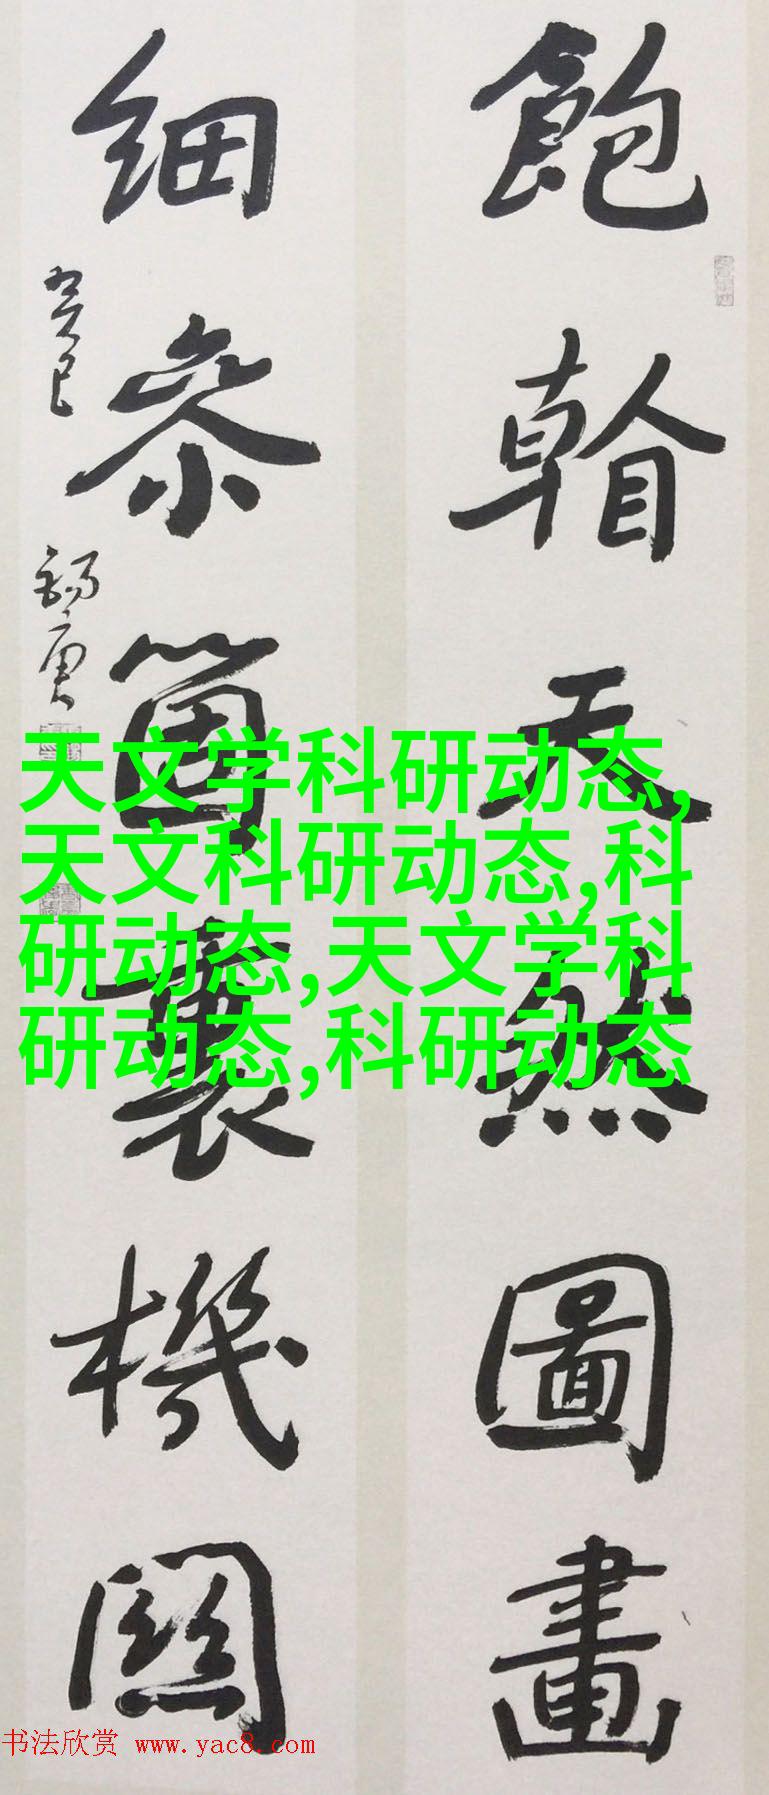 飽㸔天然圖畫
細叅箇裏機關
癸巳
錫庚
天文学科研动态,
天文科研动态,科
研动态,天文学科
研动态,科研动态
书法欣赏 www.yac8.com